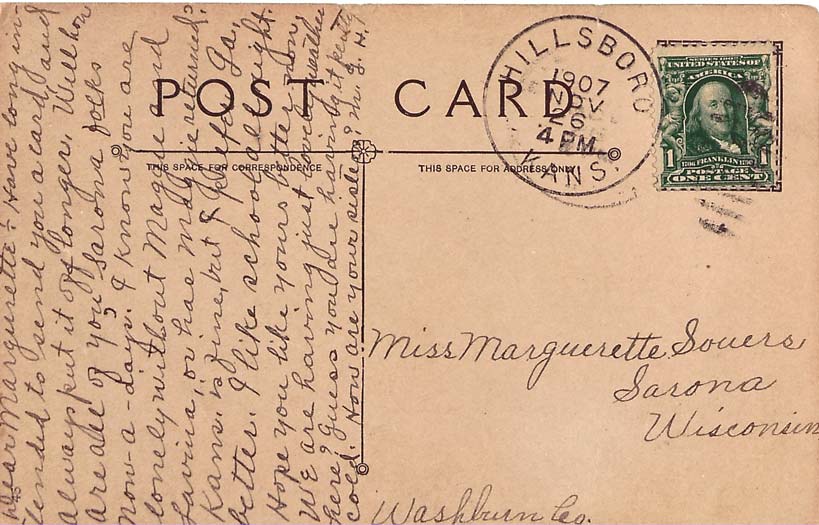 POST CARD
THIS SPACE FOR CORRESPONDENCE
THIS SPACE FOR ADDRESS ONLY
HILLSBORO
1907
NOV
26
4 PM
KANS.
SERIES 1902
UNITED STATES OF
AMERICA
1 1706 FRANKLIN 1790 1
POSTAGE
ONE CENT
Dear Marguerette:- Have long in-
tended to send you a card and
always put it off longer. Well how
are all of you Sarona folks
now-a-days. I know you are
lonely without Maggie and
Lavina, or has Maggie returned?
Kans. is fine, but I prefer Ia,
better. I like school all right.
Hope you like yours better now.
We are having just lovely weather
here? Guess you are having it pretty
cold. How are your sisters? Mrs. S. H.
Miss Marguerette Souers
Sarona
Wisconsin
Washburn Co.